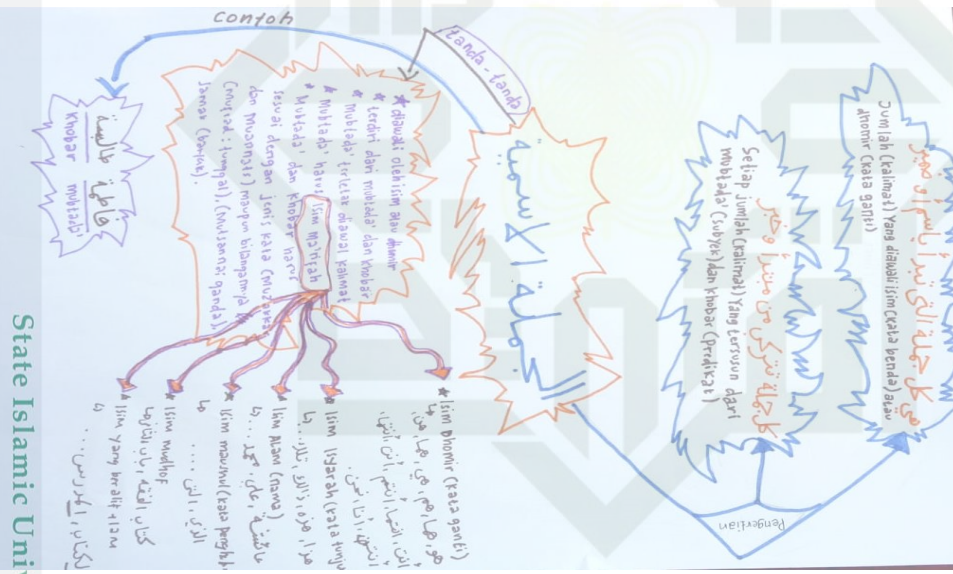 الجملة الاسمية
Pengertian
هي كل جملة التي تبدأ بإسم أو ضمير
Jumlah (kalimat) Yang diawali isim (kata benda) atau
dhomir (kata ganti)
كل جملة تتركب من مبتدأ و خبر
Setiap jumlah (kalimat) Yang tersusun dari
mubtada' (subyek) dan khobar (predikat)
tanda-tanda
★ diawali oleh isim atau dhomir
★ terdiri dari mubtada' dan khobar
★ mubtada' terletak diawal kalimat
★ Mubtada' harus isim ma'rifah
★ Mubtada' dan khobar harus
sesuai dengan jenis kata (mudzakar
dan muannats) maupun bilangannya
(mufrad: tunggal), (mutsanna: ganda),
jamak (banyak).
★ Isim Dhomir (kata ganti)
هو، هما، هم، هي، هما، هن،
أنت، أنتما، أنتم، أنت، أنتما،
أنتن، أنا، نحن.
Isim Isyarah (kata tunju
هذا، هذه، ذالك، تلك...
Isim Alam (nama)
عائشة، علي، محمد...
Isim maushul (kata penghubu
الذي، التي....
★ Isim mudhof
كتاب الفقه، باب الثاني
★ Isim yang beralif + lam
الكتاب، المدرس....
contoh
فاطمة طالبة
mubtada' khobar
State Islamic Univ